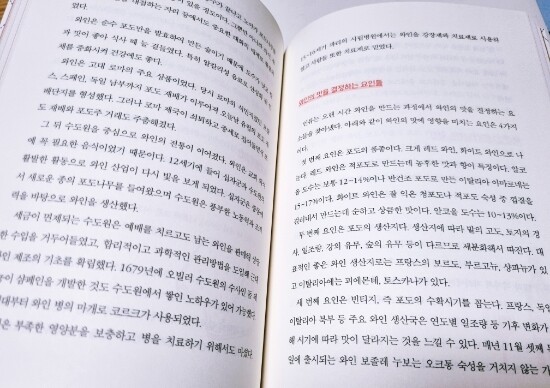 와인은 순수 포도만을 발효하여 만든 술이기 때문에
과 맛이 좋아 식사 때 늘 곁들였다. 특히 알칼리성 음료로
세를 중화시켜 건강에도 좋다.
와인은 고대 로마의 주요 상품이었다. 당시 로마의 식민지
스, 스페인, 독일 남부까지 포도 재배가 이루어져 오늘날 유럽의
배단지를 형성했다. 그러나 로마 제국이 쇠퇴하고 중세로
도 재배와 포도주 거래도 주춤해졌다.
그 뒤 수도원을 중심으로 와인의 전통이 이어졌다. 와인은 교회
에 꼭 필요한 음식이었기 때문이다. 12세기에 들어 십자군과
활발한 활동으로 와인 산업이 다시 빛을 보게 되었다. 십자군은
서 새로운 종의 포도나무를 들여왔으며 수도원은 풍부한 노동력과
력을 바탕으로 와인을 생산했다.
세금이 면제되는 수도원은 예배를 치르고도 남는 와인을 판매해
한 수입을 거두어들였고, 합리적이고 과학적인 관리방법을 도입해 근대
와인 제조의 기초를 확립했다. 1679년에 오빌러 수도원의 수사인
이 샴페인을 개발한 것도 수도원에서 쌓인 노하우가 있어 가능했다.
대부터 와인 병의 마개로 코르크가 사용되었다.
은 부족한 영양분을 보충하고 병을 치료하기 위해서도 마셨다.
시립병원에서는 와인을 강장제와 치료제로 사용하
와인의 맛을 결정하는 요인들
인류는 오랜 시간 와인을 만드는 과정에서 와인의 맛을 결정하는 요
소들을 찾아냈다. 아래와 같이 와인의 맛에 영향을 미치는 요인은 4가지
다.
첫 번째 요인은 포도의 품종이다. 크게 레드 와인, 화이트 와인으로 나
뉜다. 레드 와인은 적포도로 만드는데 풍부한 맛과 향이 특징이다. 알코
올 도수는 보통 12~14%이나 반건조 포도로 만드는 이탈리아 아마로네는
15~17%이다. 화이트 와인은 잘 익은 청포도나 적포도 속성 중 껍질을
골라내서 만드는데 순하고 상큼한 맛이다. 알코올 도수는 10~13%이다.
두 번째 요인은 포도의 생산지다. 생산지에 따라 밭의 고도, 토지의 경
사, 일조량, 강의 유무, 숲의 유무 등이 다르므로 세분화해서 따진다. 대
표적인 좋은 와인 생산지로는 프랑스의 보르도, 부르고뉴, 샹파뉴가 있
고 이탈리아에는 피에몬테, 토스카나가 있다.
세 번째 요인은 빈티지, 즉 포도의 수확시기를 꼽는다. 프랑스, 독일,
이탈리아 북부 등 주요 와인 생산국은 연도별 일조량 등 기후 변화가
해 시기에 따라 맛이 달라지는 것을 느낄 수 있다. 매년 11월 셋째
일에 출시되는 와인 보졸레 누보는 오크통 숙성을 거치지 않는